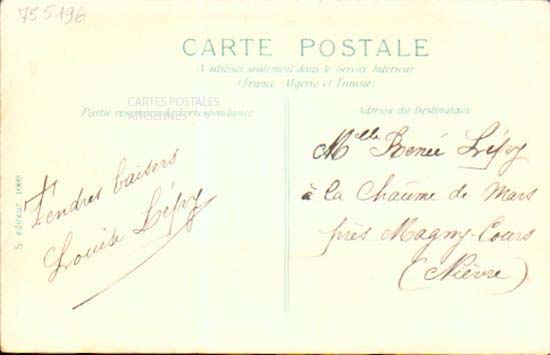 755196
CARTE POSTALE
A utiliser seulement dans le Service Intérieur
(France Algérie et Tunisie)
Partie réservée à la Correspondance
CARTES POSTALES
ANCIENNES
Adresse du Destinataire
Tendres baisers
Louise Lépy
Mlle Renée Lépy
à la Chaume de Mars
près Magny-Cours
(Nièvre)
S. éditeur